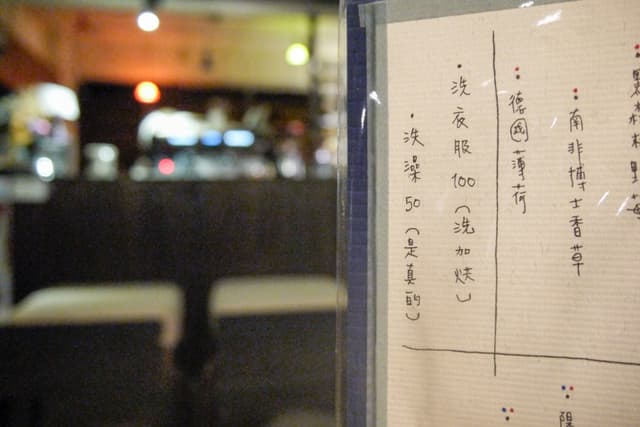 南非博士香草
德國薄荷
洗衣服100(洗加烘)
洗澡50(是真的)
陽